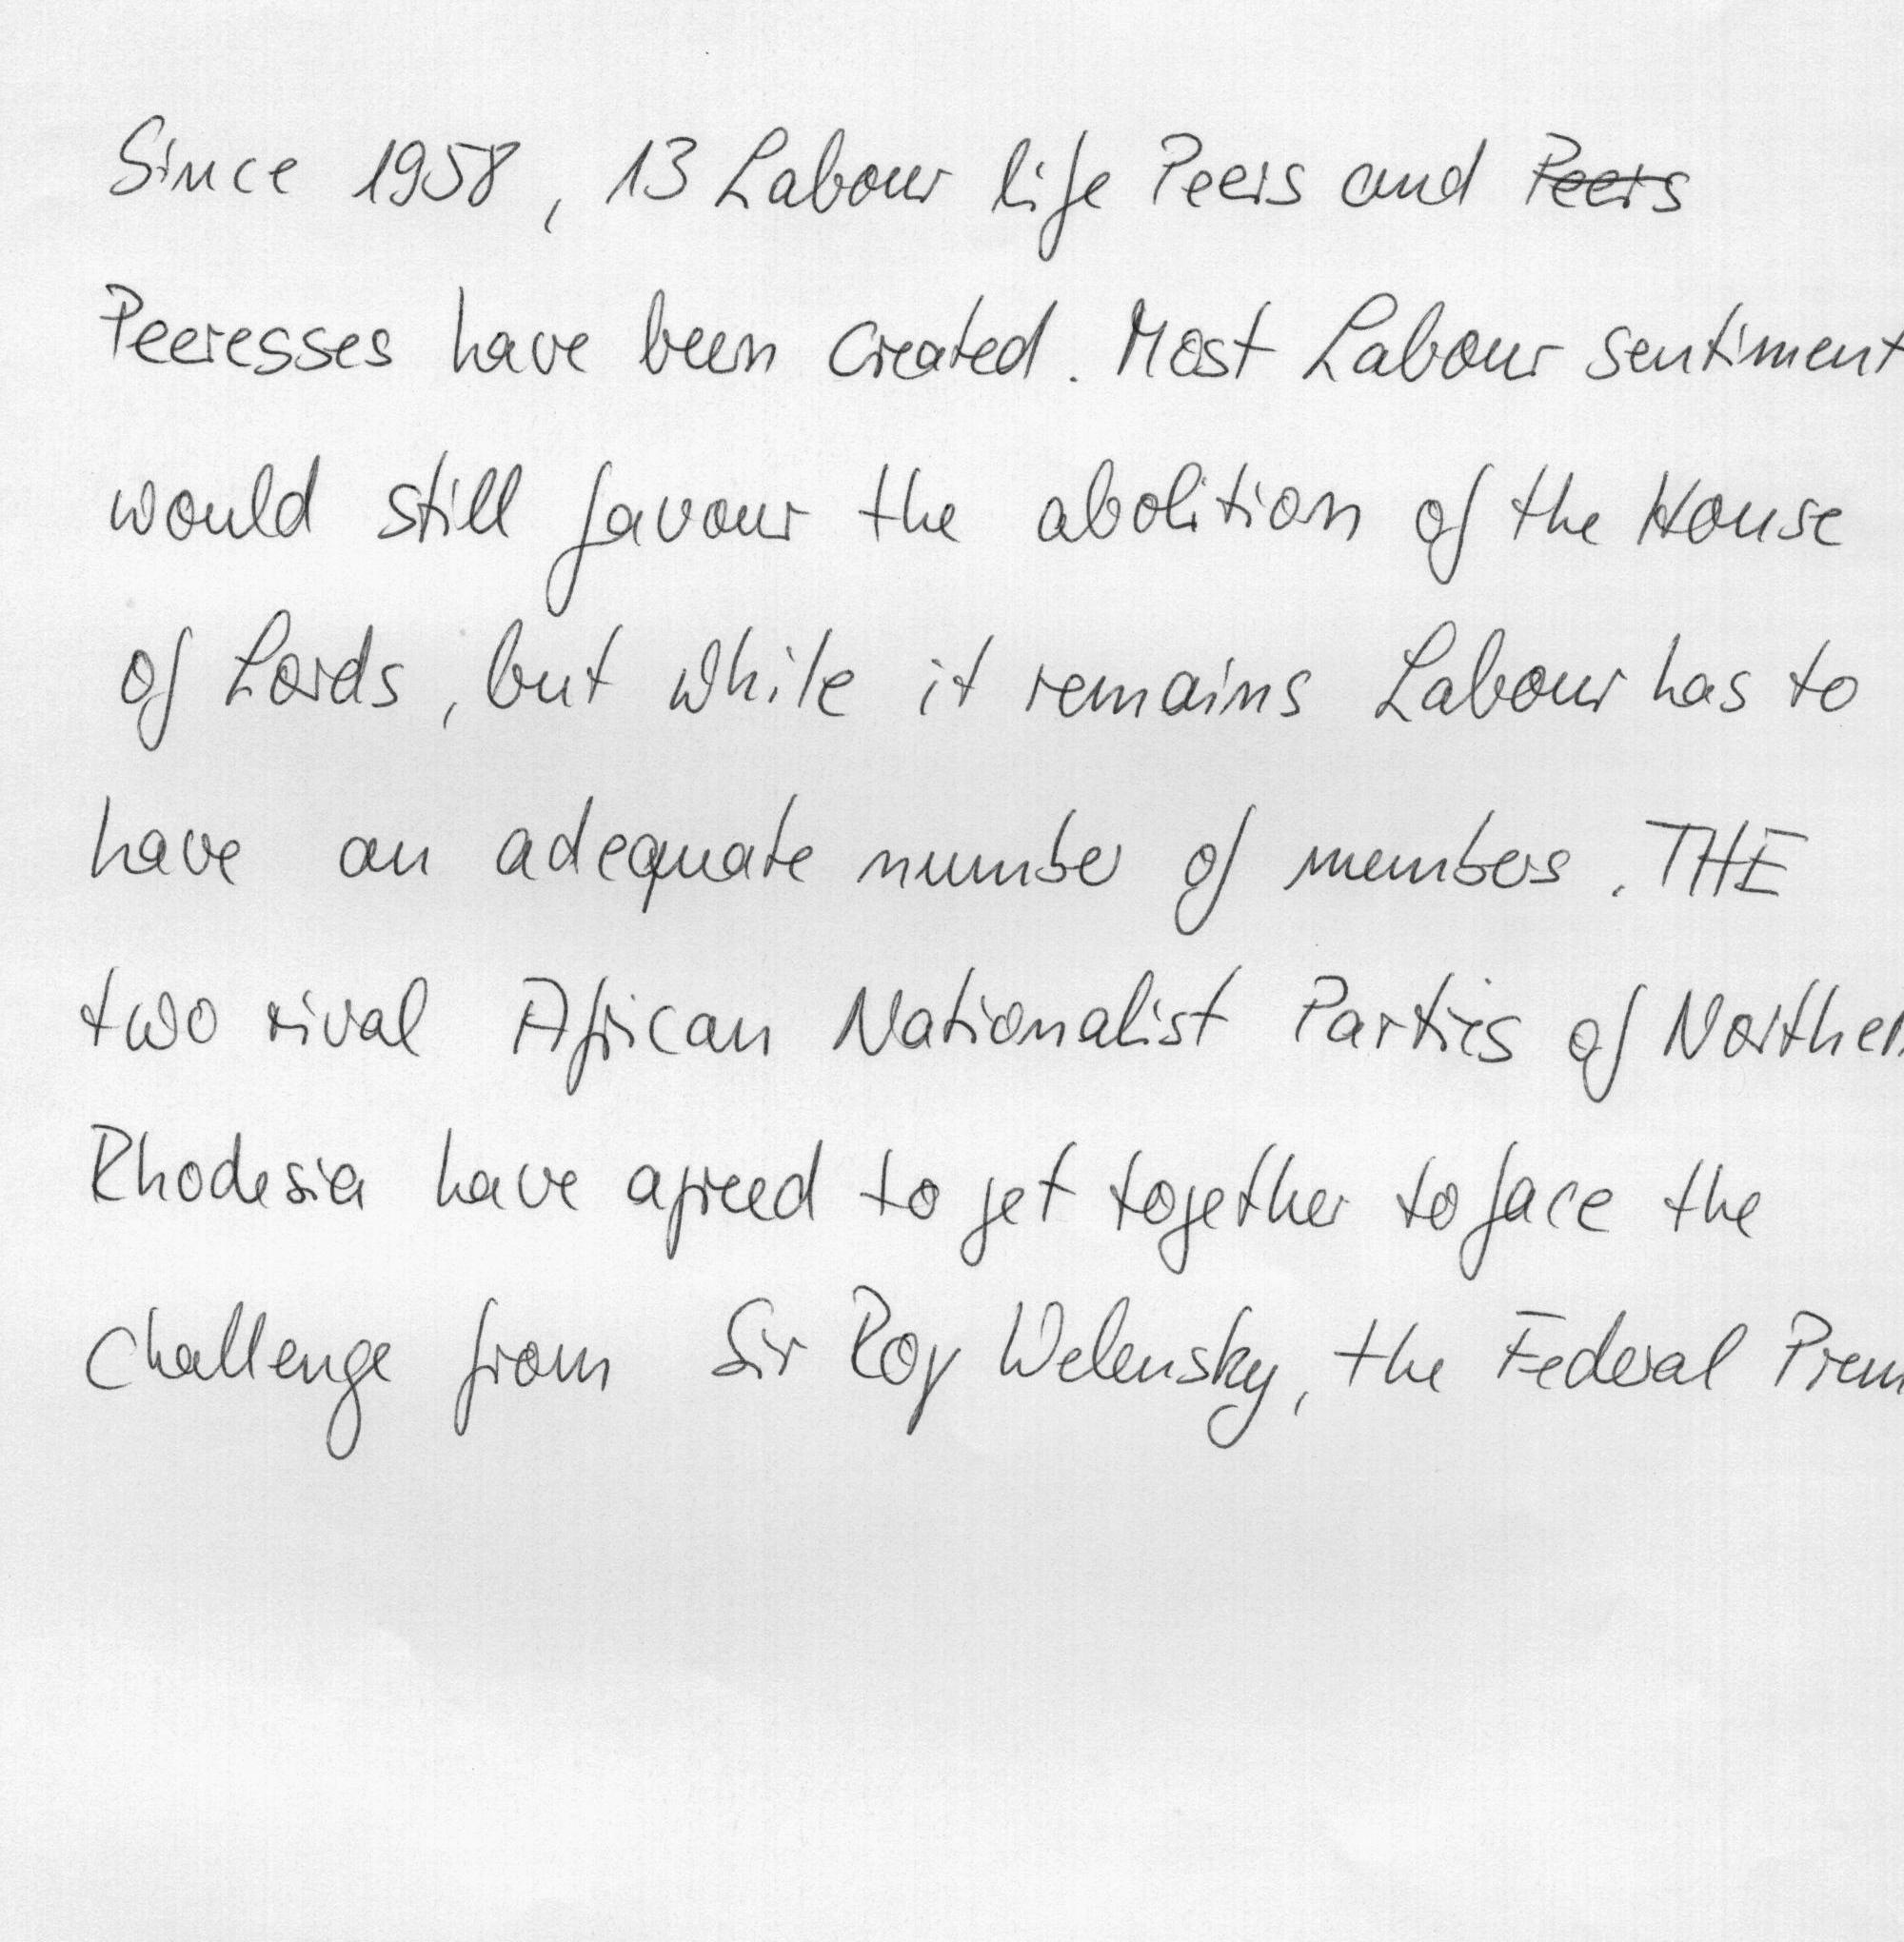 Since 1958, 13 Labour life Peers and Peers
Peeresses have been created. Most Labour sentiment
would still favour the abolition of the House
of Lords, but while it remains Labour has to
have an adequate number of members. THE
two rival African Nationalist Parties of Norther
Rhodesia have agreed to get together to face the
challenge from Sir Roy Welensky, the Federal Prem